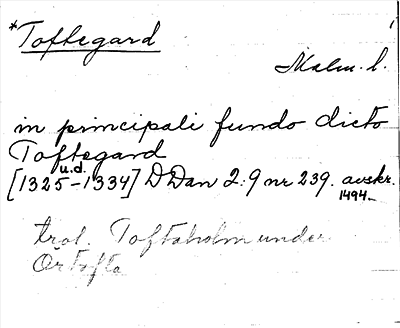 *Toftegard
Malm. l.
in principali fundo dicto
Toftegard
u.d.
[1325-1334] DDan 2:9 nr 239. avskr.
1494
trol. Toftaholm under
Örtofta